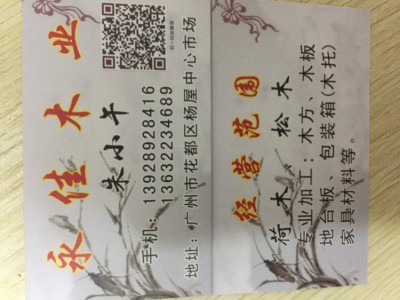 永佳木业
朱小午
手机：13928928416
13632234689
地址：广州市花都区杨屋中心市场
经营范围
荷木 松木
专业加工：木方、木板
地台板、包装箱(木托)
家具材料等。